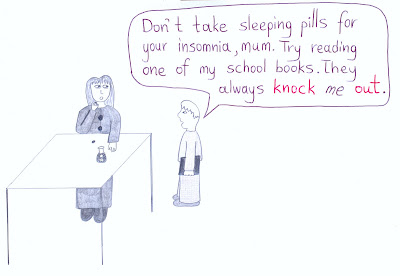 Don't take sleeping pills for
your insomnia, mum. Try reading
one of my school books. They
always knock me out.